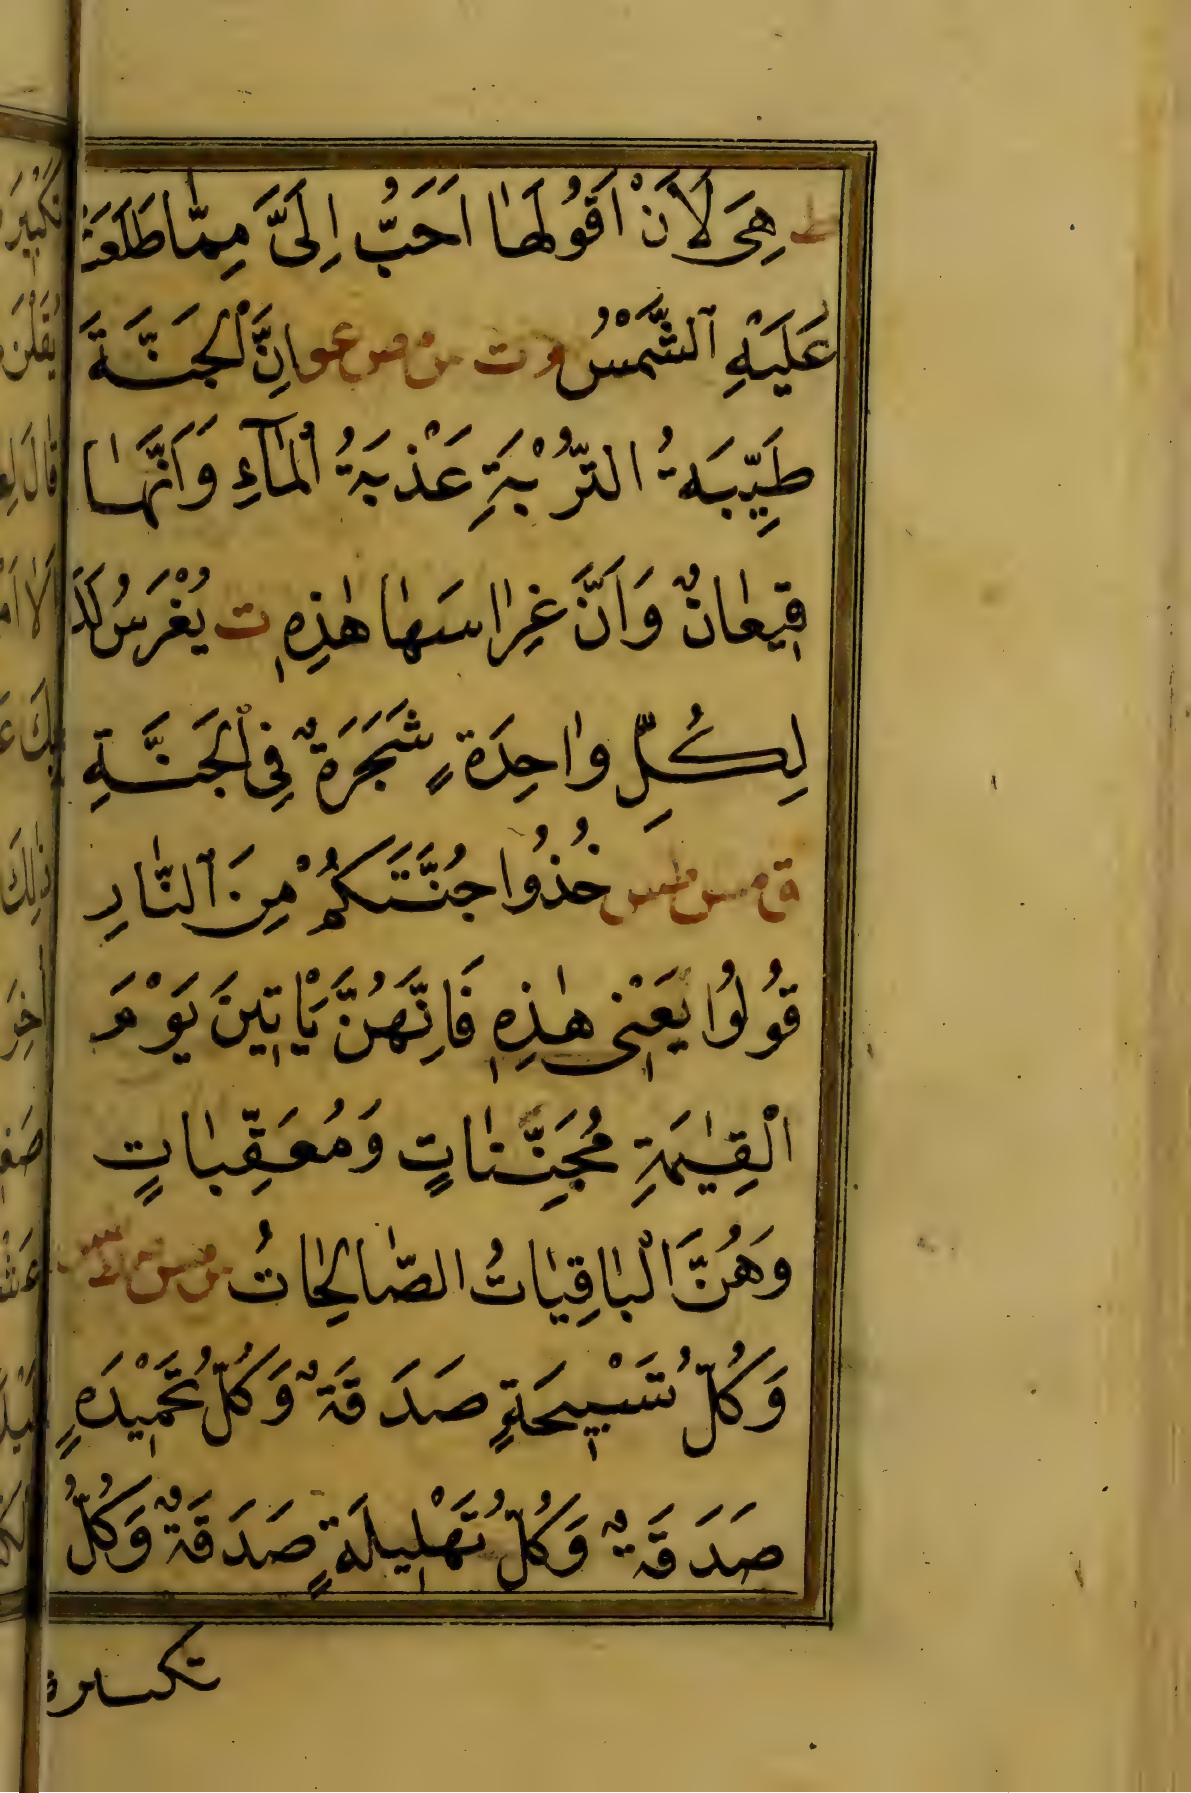 ط هِىَ لَاَنْ اَقُولَهٰا اَحَبُّ اِلَىَّ مِمّٰاطَلَعَتْ
عَلَيْهِ الشَّمْسُ م ت س مص عو اِنَّ الْجَنَّةَ
طَيِّبَةُ التُّرْبَةِ عَذْبَةُ الْمٰآءِ وَاَنَّهٰا
قيٖعٰانٌ وَاَنَّ غِرٰاسَهٰا هٰذِهٖ ت يُغْرَسُ لَكَ
لِكُلِّ وٰاحِدَةٍ شَجَرَةٌ فِى الْجَنَّةِ
ق مس طس خُذُوا جُنَّتَكُمْ مِنَ النّٰارِ
قُولُوا يَعْنٖى هٰذِهٖ فَاِنَّهُنَّ يَاْتٖينَ يَوْمَ
الْقِيٰمَةِ مُجَنِّبٰاتٍ وَمُعَقِّبٰاتٍ
وَهُنَّ الْبٰاقِيٰاتُ الصّٰالِحٰاتُ س مس
وَكُلُّ تَسْبٖيحَةٍ صَدَقَةٌ وَكُلُّ تَحْمٖيدَةٍ
صَدَقَةٌ وَكُلُّ تَهْلٖيلَةٍ صَدَقَةٌ وَكُلُّ
تكبيرة